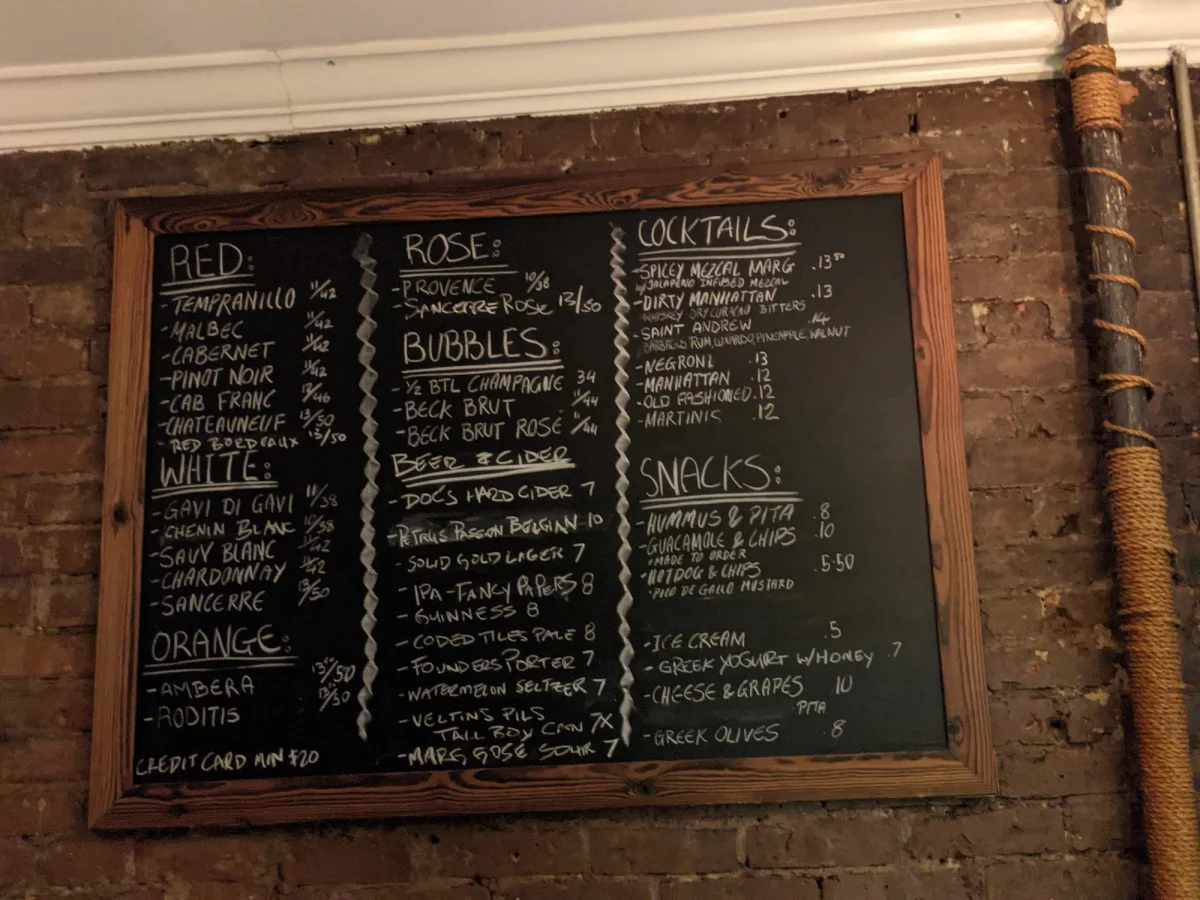 RED:
-TEMPRANILLO 11/42
-MALBEC 11/42
-CABERNET 11/42
-PINOT NOIR 11/42
-CAB FRANC 12/46
-CHATEAUNEUF 13/50
-RED BORDEAUX 13/50
WHITE:
-GAVI DI GAVI 11/38
-CHENIN BLANC 10/38
-SAUV BLANC 11/42
-CHARDONNAY 11/42
-SANCERRE 13/50
ORANGE:
-AMBERA 13⁵⁰/50
-RODITIS 13/50
CREDIT CARD MIN $20
ROSE:
-PROVENCE 10/38
-SANCERRE ROSE 13/50
BUBBLES:
-½ BTL CHAMPAGNE 34
-BECK BRUT 11/44
-BECK BRUT ROSÉ 11/44
BEER & CIDER
-DOC'S HARD CIDER 7
-PETRUS PASSION BELGIAN 10
-SOLID GOLD LAGER 7
-IPA-FANCY PAPERS 8
-GUINNESS 8
-CODED TILES PALE 8
-FOUNDERS PORTER 7
-WATERMELON SELTZER 7
-VELTINS PILS
TALL BOY CAN 7X
-MARG GOSE SOUR 7
COCKTAILS:
-SPICEY MEZCAL MARG .13⁵⁰
W/JALAPENO INFUSED MEZCAL
-DIRTY MANHATTAN .13
WHISKEY DRY CURACAO BITTERS
-SAINT ANDREW .14
BARBADOS RUM, LUXARDO, PINEAPPLE, WALNUT
-NEGRONI .13
-MANHATTAN .12
-OLD FASHIONED .12
-MARTINIS .12
SNACKS:
-HUMMUS & PITA .8
-GUACAMOLE & CHIPS .10
*MADE TO ORDER
-HOTDOG & CHIPS .5.50
*PICO DE GALLO MUSTARD
-ICE CREAM .5
-GREEK YOGURT W/HONEY .7
-CHEESE & GRAPES 10
PITA
-GREEK OLIVES .8